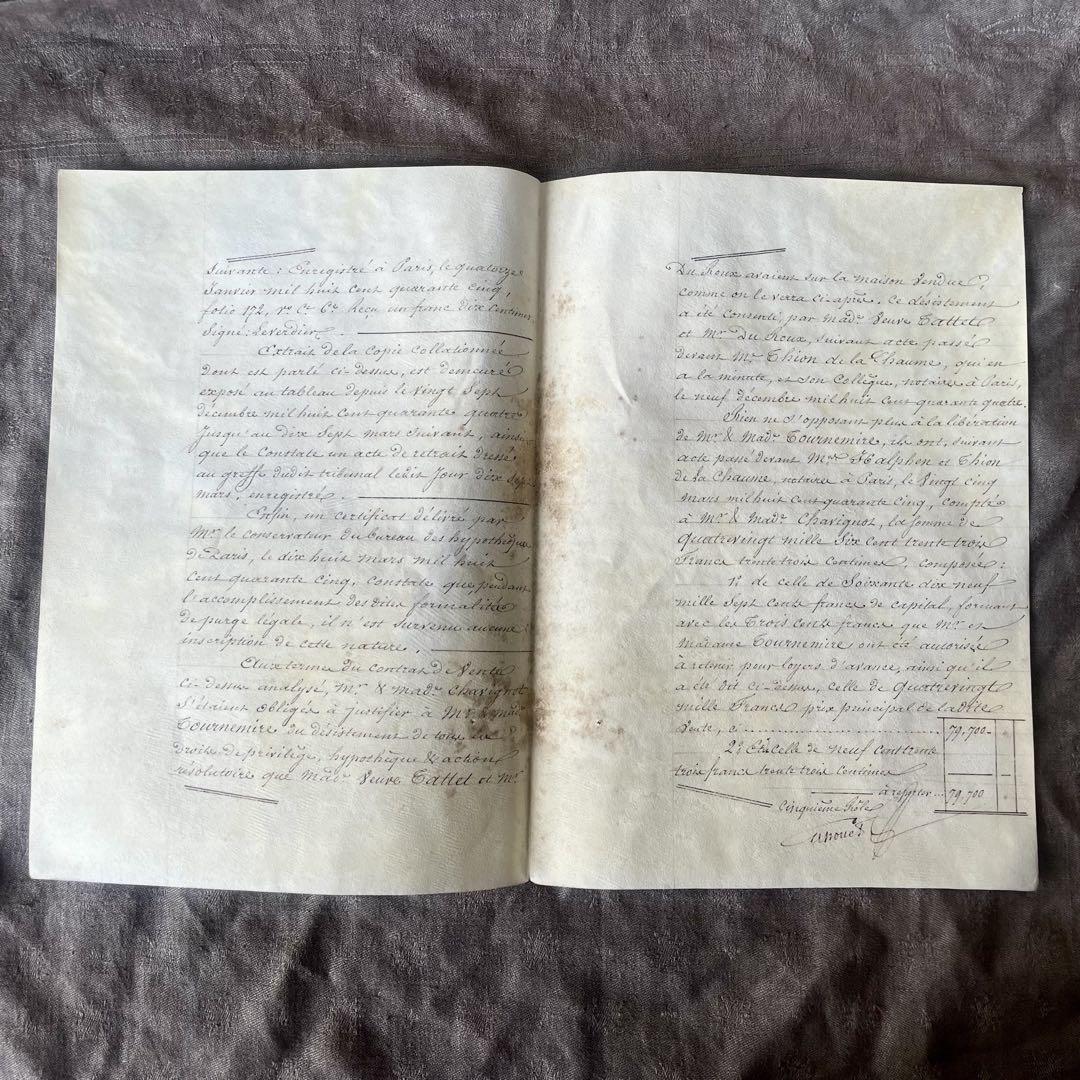 Suivante : Enregistré à Paris, le quatorze
Janvier mil huit cent quarante cinq,
folio 172, ro. Ce. 6e. Reçu un franc dix centimes
Signé : Leverdier.
Extrait de la Copie Collationnée
dont est parlé ci-dessus, est demeuré
exposé au tableau depuis le Vingt Sept
décembre mil huit Cent quarante quatre
Jusqu'au dix Sept mars Suivant, ainsi
que le Constate un acte de retrait dressé
au greffe dudit tribunal ledit Jour dix Sept
mars, enregistré.
Enfin, un certificat délivré par
Mr. le conservateur du bureau des hypothèques
de Paris, le dix huit mars mil huit
Cent quarante cinq, Constate que, pendant
l'accomplissement des dites formalités
de purge légale, il n'est Survenu aucune
inscription de cette nature.
Aux termes du Contrat de Vente
ci-dessus analysé, Mr. & made. Chavignot
S'étaient obligés à Justifier à Mr. & made.
Tournemire du désistement de tous les
droits de privilège, hypothèque & action
résolutoire que made. Veuve Tattet et Mr.
Du Roux avaient sur la maison Vendue,
comme on le verra ci-après. Ce désistement
a été Consenti, par made. Veuve Tattet
et Mr. Du Roux, Suivant acte passé
devant Me. Thion de la Chaume, qui en
a la minute, et son Collègue, notaires à Paris,
le neuf décembre mil huit Cent quarante quatre.
Rien ne S'opposant plus à la libération
de Mr. & made. Tournemire, ils ont, Suivant
acte passé devant Mes. Halphen et Thion
de la Chaume, notaires à Paris, le Vingt cinq
mars mil huit Cent quarante Cinq, Compté
à Mr. & made. Chavignot, la Somme de
Quatrevingt mille Six Cent trente trois
Francs trente trois Centimes, composée :
1o. de celle de Soixante dix neuf
mille Sept Cents francs de Capital, formant
avec les Trois Cents francs que Mr. et
madame Tournemire ont été autorisés
à retenir pour loyers d'avance, ainsi qu'il
a été dit ci-dessus, celle de Quatrevingt
mille Francs prix principal de la dite
Vente, ci .......... 79,700 -
2o. Et de Celle de neuf Cent trente
trois francs trente trois Centimes
à reporter ... 79,700
Cinquième Rôle